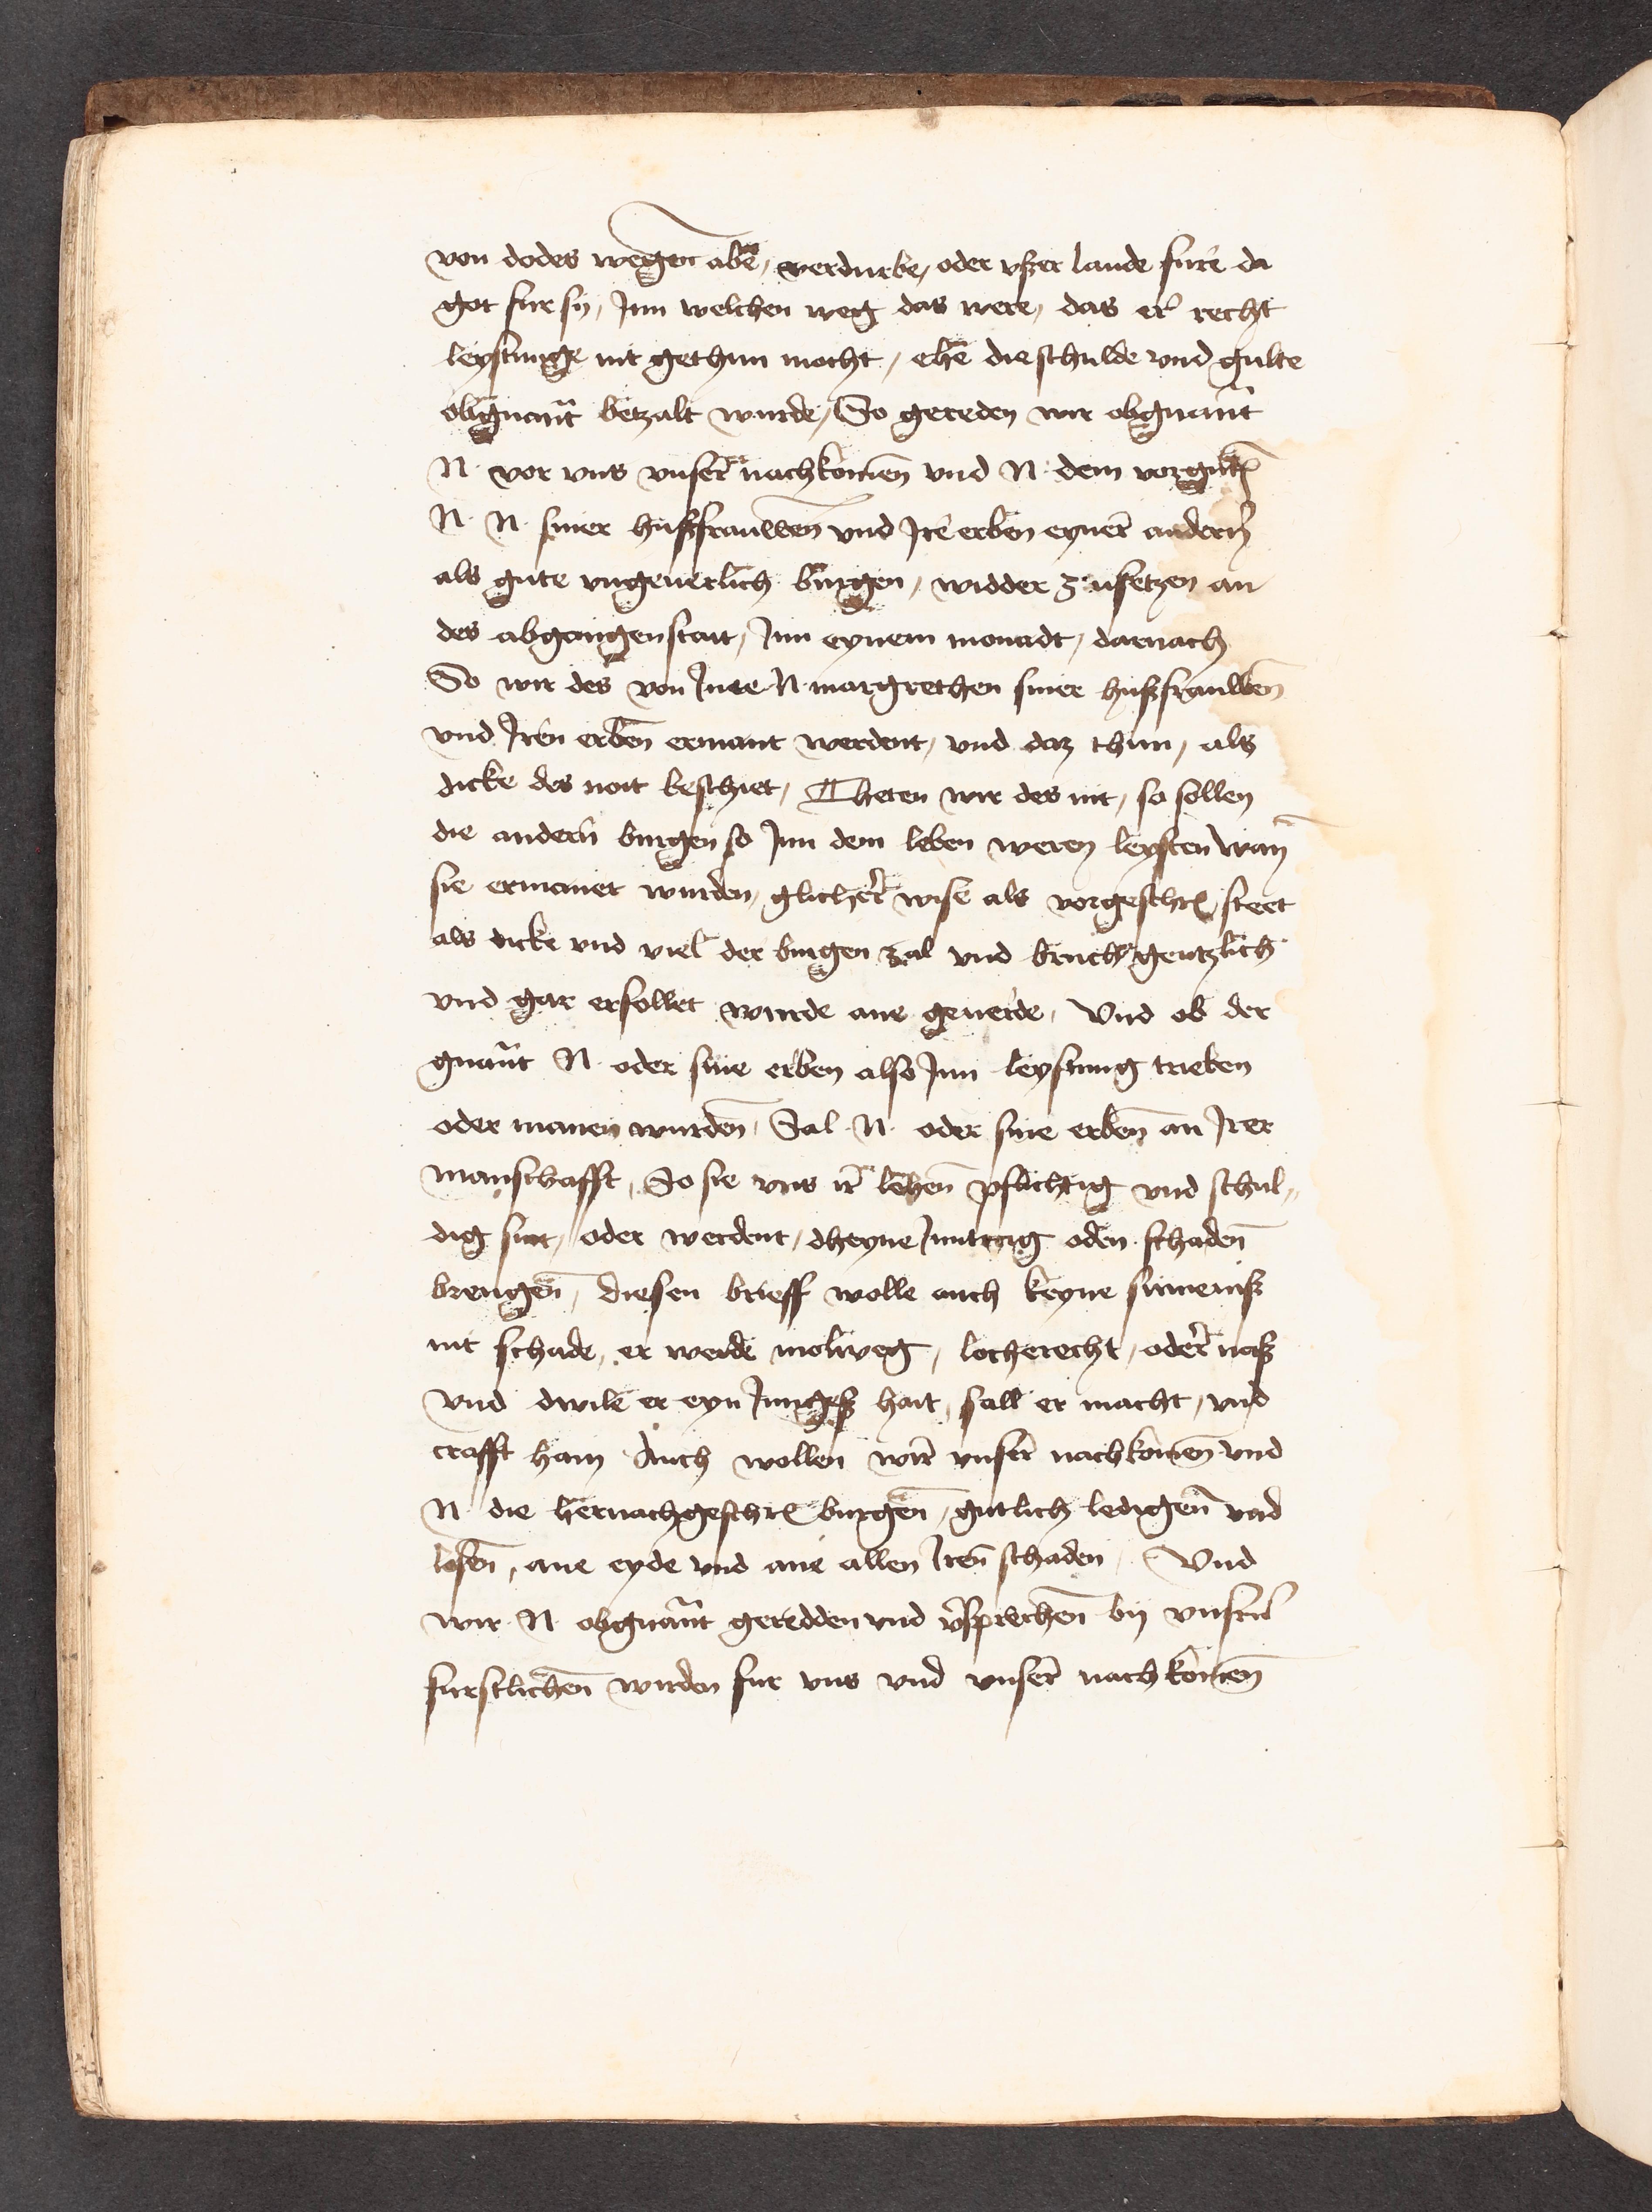 von dodes wegen abe, verdurbe, oder vßer lande fure da
got fur sy, Jnn welchen weg das were, das er recht
leystunge nit gethun mocht, ehe die schulde vnd gulte
obgnant betzalt wurde, So gereden wir obgnant
N. vor vns vnser nachkomen vnd N. dem vorgnten
N. N. siner hußfrauwen vnd Jre erben eyner andern
als gute vngeuerlich burgen, widder zusetzen an
des abgangen statt, Jnn eynem monadt, darnach
So wir des von Jme N. margrethen siner hußfrauwen
vnd Jren erben ermant werdent, vnd daz thun, als
dicke des noit beschiet, Theten wir des nit, so sollen
die andern burgen so Jnn dem leben weren leysten wan
sie ermanet wurden, glicher wise als vorgeschr steet
als dicke vnd viel der burgen zal vnd bruch gentzlich
vnd gar erfollet wurde ane geuerde, Vnd ob der
gnant N. oder sine erben also Jnn leystung trieben
oder manen wurden, Sal N. oder sine erben an Jrer
manschafft, So sie vns ir lehen pflichtig vnd schul„
dig sint, oder werdent, dheyne Jnntrag oden schaden
brengen, diesen brieff wolle auch keyne sumeniß
nit schade, er werde molweg, locherecht, oder naß
vnd dwile er eyn Jnngeß hait, sall er macht, vnd
crafft han Auch wollen wir vnser nachkomen vnd
N. die hernachgeschr burgen, gutlich ledigen vnd
losen, ane eyde vnd ane allen Jren schaden, Vnd
wir N. obgnant geredden vnd vsprechen by vnsern
furstlichen wirden fur vns vnd vnser nachkomen